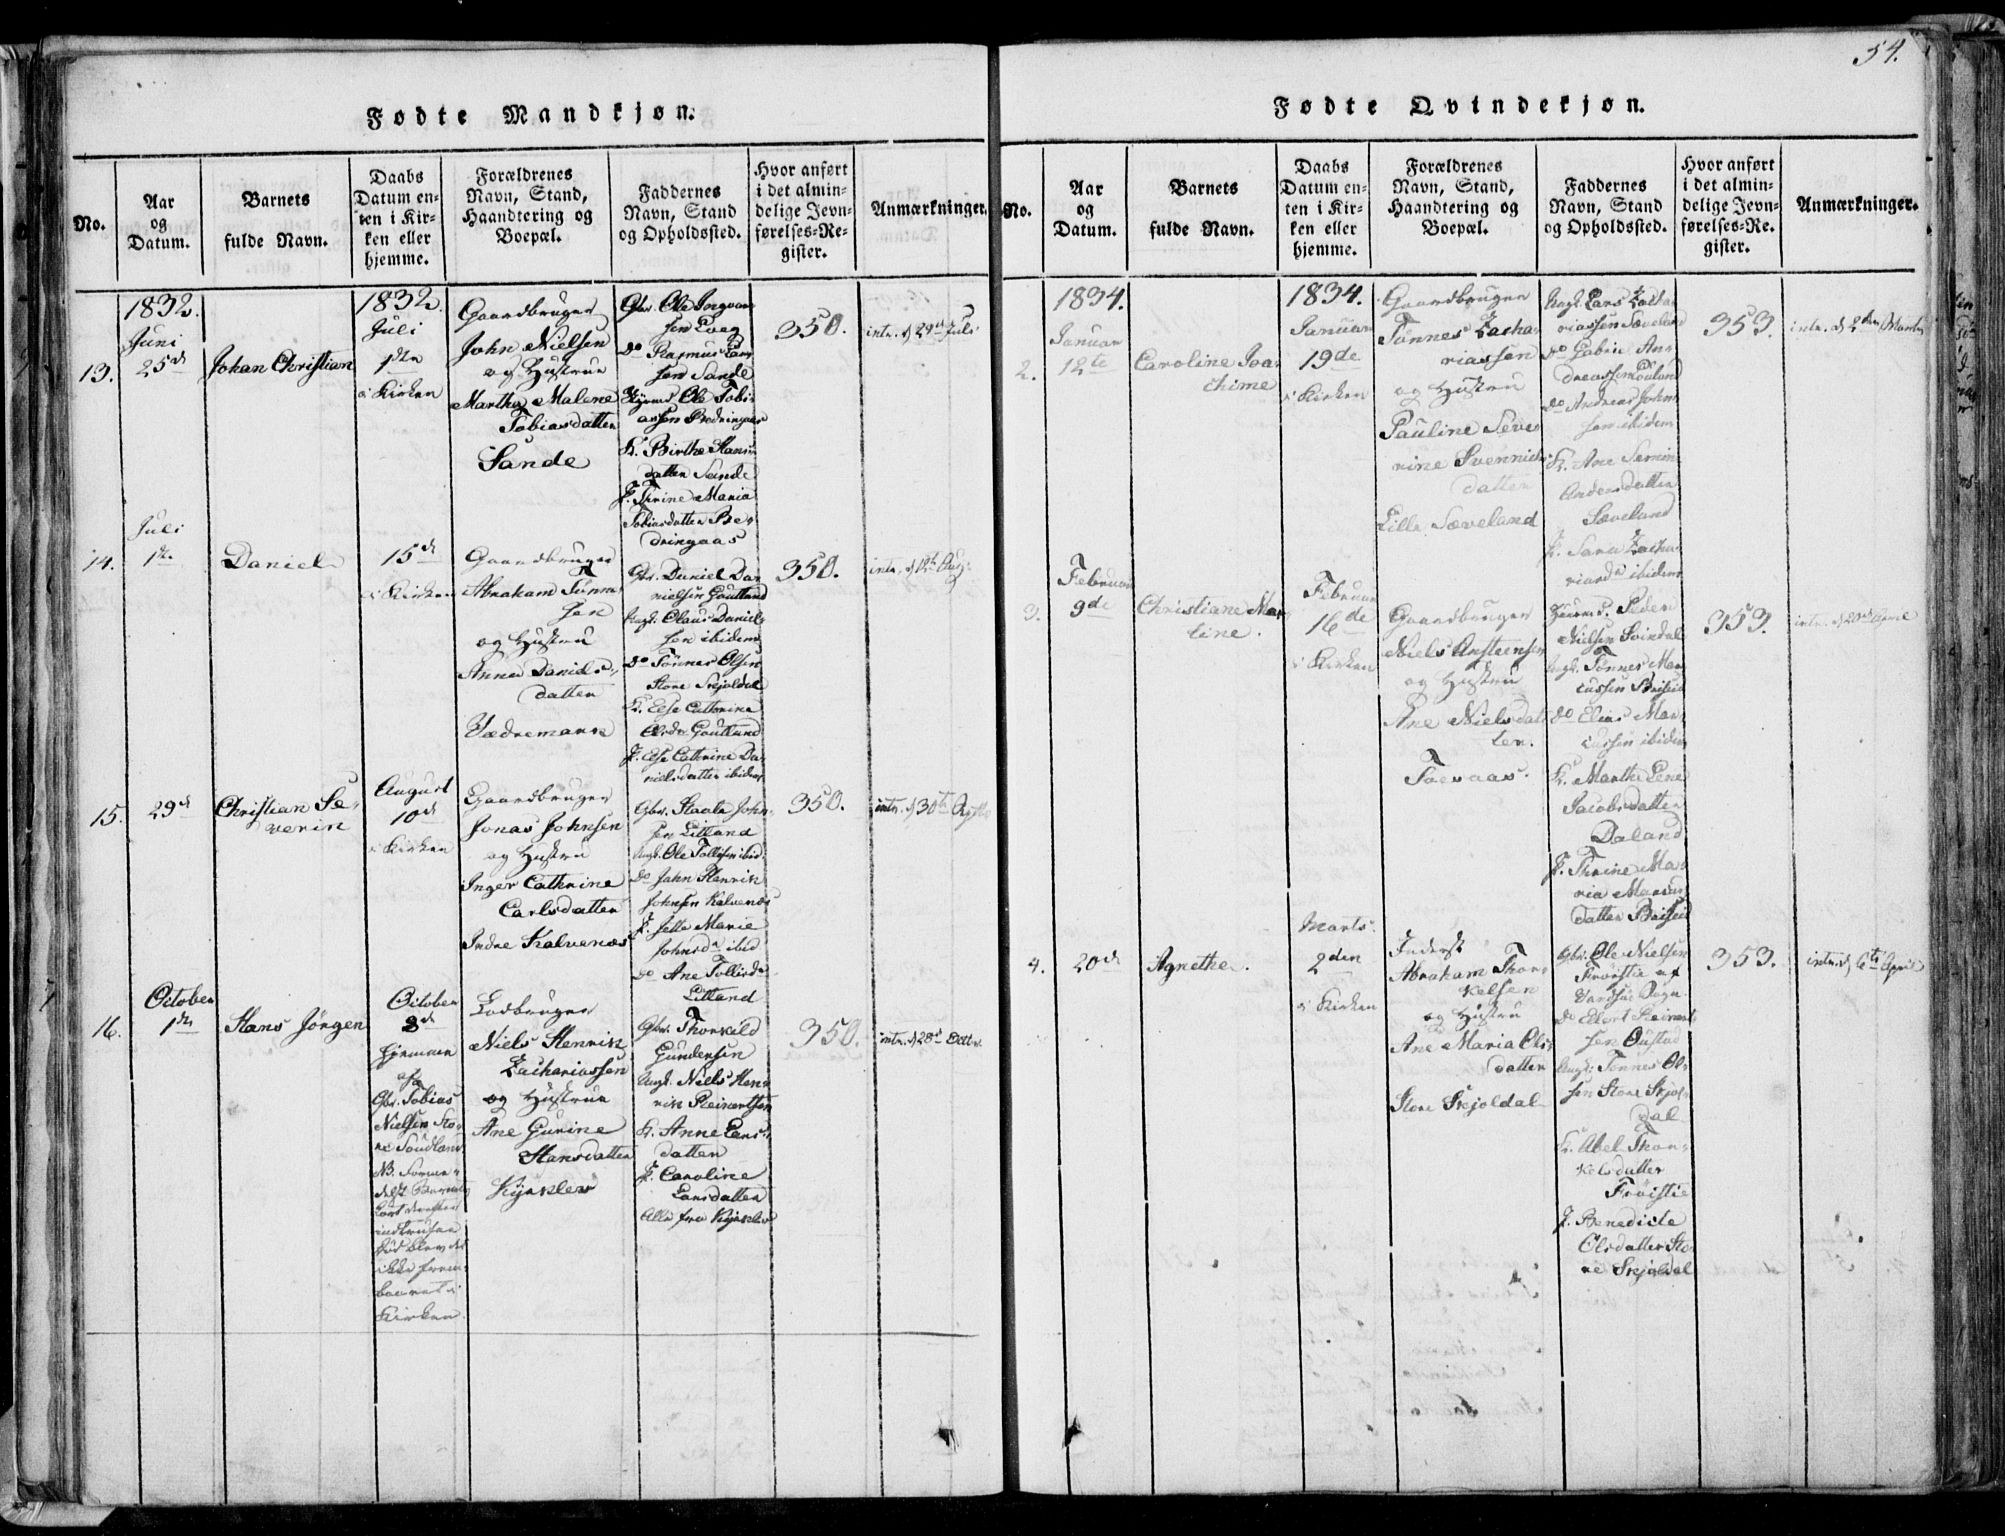 54.
Fødte Mandkjøn.
No.
Aar og Datum.
Barnets fulde Navn.
Daabs Datum enten i Kirken eller hjemme.
Forældrenes Navn, Stand, Haandtering og Boepæl.
Faddernes Navn, Stand og Opholdssted.
Hvor anført i det almindelige Jevnførelses-Register.
Anmærkninger.
13.
1832.
Juni
25de
Johan Christian
1832.
Juli
1ste
i Kirken
Gaardbruger
John Nielsen
og Hustrue
Martha Malene
Tobiasdatter
Sande
Gbr. Ole Ingvar
sen
do Rasmus Lar
sen Sande
Ole Tobi
assen
K. Birthe Hans
datter Sande
P. Thrine Maria
Tobiasdatter Be
dringaas
350.
intr. d 29de Juli
14.
Juli
1ste
Daniel
15de
i Kirken
Gaardbruger
Abraham Tønne
sen
og Hustru
Anna Daniels
datter
Vædremann
Gbr. Daniel Da
nielsen Goutland
Ungk. Claus Daniel
sen ibidem
do Tönnes Olsen
Store Skjoldal
K. Else Cathrine
Olsdr Goutland
P. Else Cathrine Da
nielsdatter ibidem
350.
intr. d 12te Aug:
15.
29de
Christian Se
verin
August
10de
i Kirken
Gaardbruger
Jonas Johnsen
og Hustru
Inger Cathrine
Carlsdatter
Indre Kalvenæs
Gbr. Staale John
sen Litland
Ungk. Ole Tollisen ibid.
do John Henrik
Johnsen Kalvenæs
P. Jette Marie
Johnsdr ibid
do Ane Tollisdr
Litland
350.
intr. d 30te
16.
October
1ste
Hans Jörgen
October
3de
hjemme
af
Gbr. Tobias
Nielsen Sto
re Soudland
NB. Forme
delst Barnets
indtrufne
Död blev det
ikke frem
baaret i
Kirken.
Lodbruger
Niels Henrik
Zachariassen
og Hustrue
Ane Gurine
Hansdatter
Gbr. Thorkeld
Gundersen
Ungk. Niels Hen
rik Reinertsen
K. Anne Lars
datter
P. Caroline
Larsdatter
Alle fra
350.
intr. d 28de
Fødte Qvindekjøn.
No.
Aar og Datum.
Barnets fulde Navn.
Daabs Datum enten i Kirken eller hjemme.
Forældrenes Navn, Stand, Haandtering og Boepæl.
Faddernes Navn, Stand og Opholdssted.
Hvor anført i det almindelige Jevnførelses-Register.
Anmærkninger.
2.
1834.
Januar
12te
Caroline Joa
chime
1834.
Januar
19de
i Kirken
Gaardbruger
Tønnes Zacha
riassen
og Hustru
Pauline Seve
rine Svennings
datter
Lille Sæveland
Ungk. Lars Zacha
riassen Sæveland
do Gabriel An
dreassen
do Andreas John
sen ibidem
K. Ane Serine
Andersdatter
Sæveland
P. Sara Zacha
riasdr ibidem
353.
intr. d 2den Marts
3.
Februar
9de
Christiane Mar
tine.
Februar
16de
i Kirken
Gaardbruger
Niels Ansteensen
og Hustru
Ane Nielsdat
ter.
Peder
Nielsen Svindal
Ungk. Tønnes Mar
cussen Briseid
do Elias Mar
cussen ibidem
K. Marthe Lene
Jacobsdatter
Daland
P. Thrine Ma
ria Marcus
datter Briseid
353.
intr. d 20de April
4.
20de
Agnethe.
Marts.
2den
i Kirken
Inderst
Abraham Thor
kelsen
og Hustru
Ane Maria Ols
datter
Store Skjoldal
Gbr. Ole Nielsen
Fröistie af
Vandsöe Sogn.
do Elert Reinert
sen Oustad
Ungk: Tønnes Ol
sen Store Skjol
dal
K. Abel Thor
kelsdatter
Fröistie
P. Benedicte
Olsdatter Sto
re Skjoldal
353.
intr. d 6te April